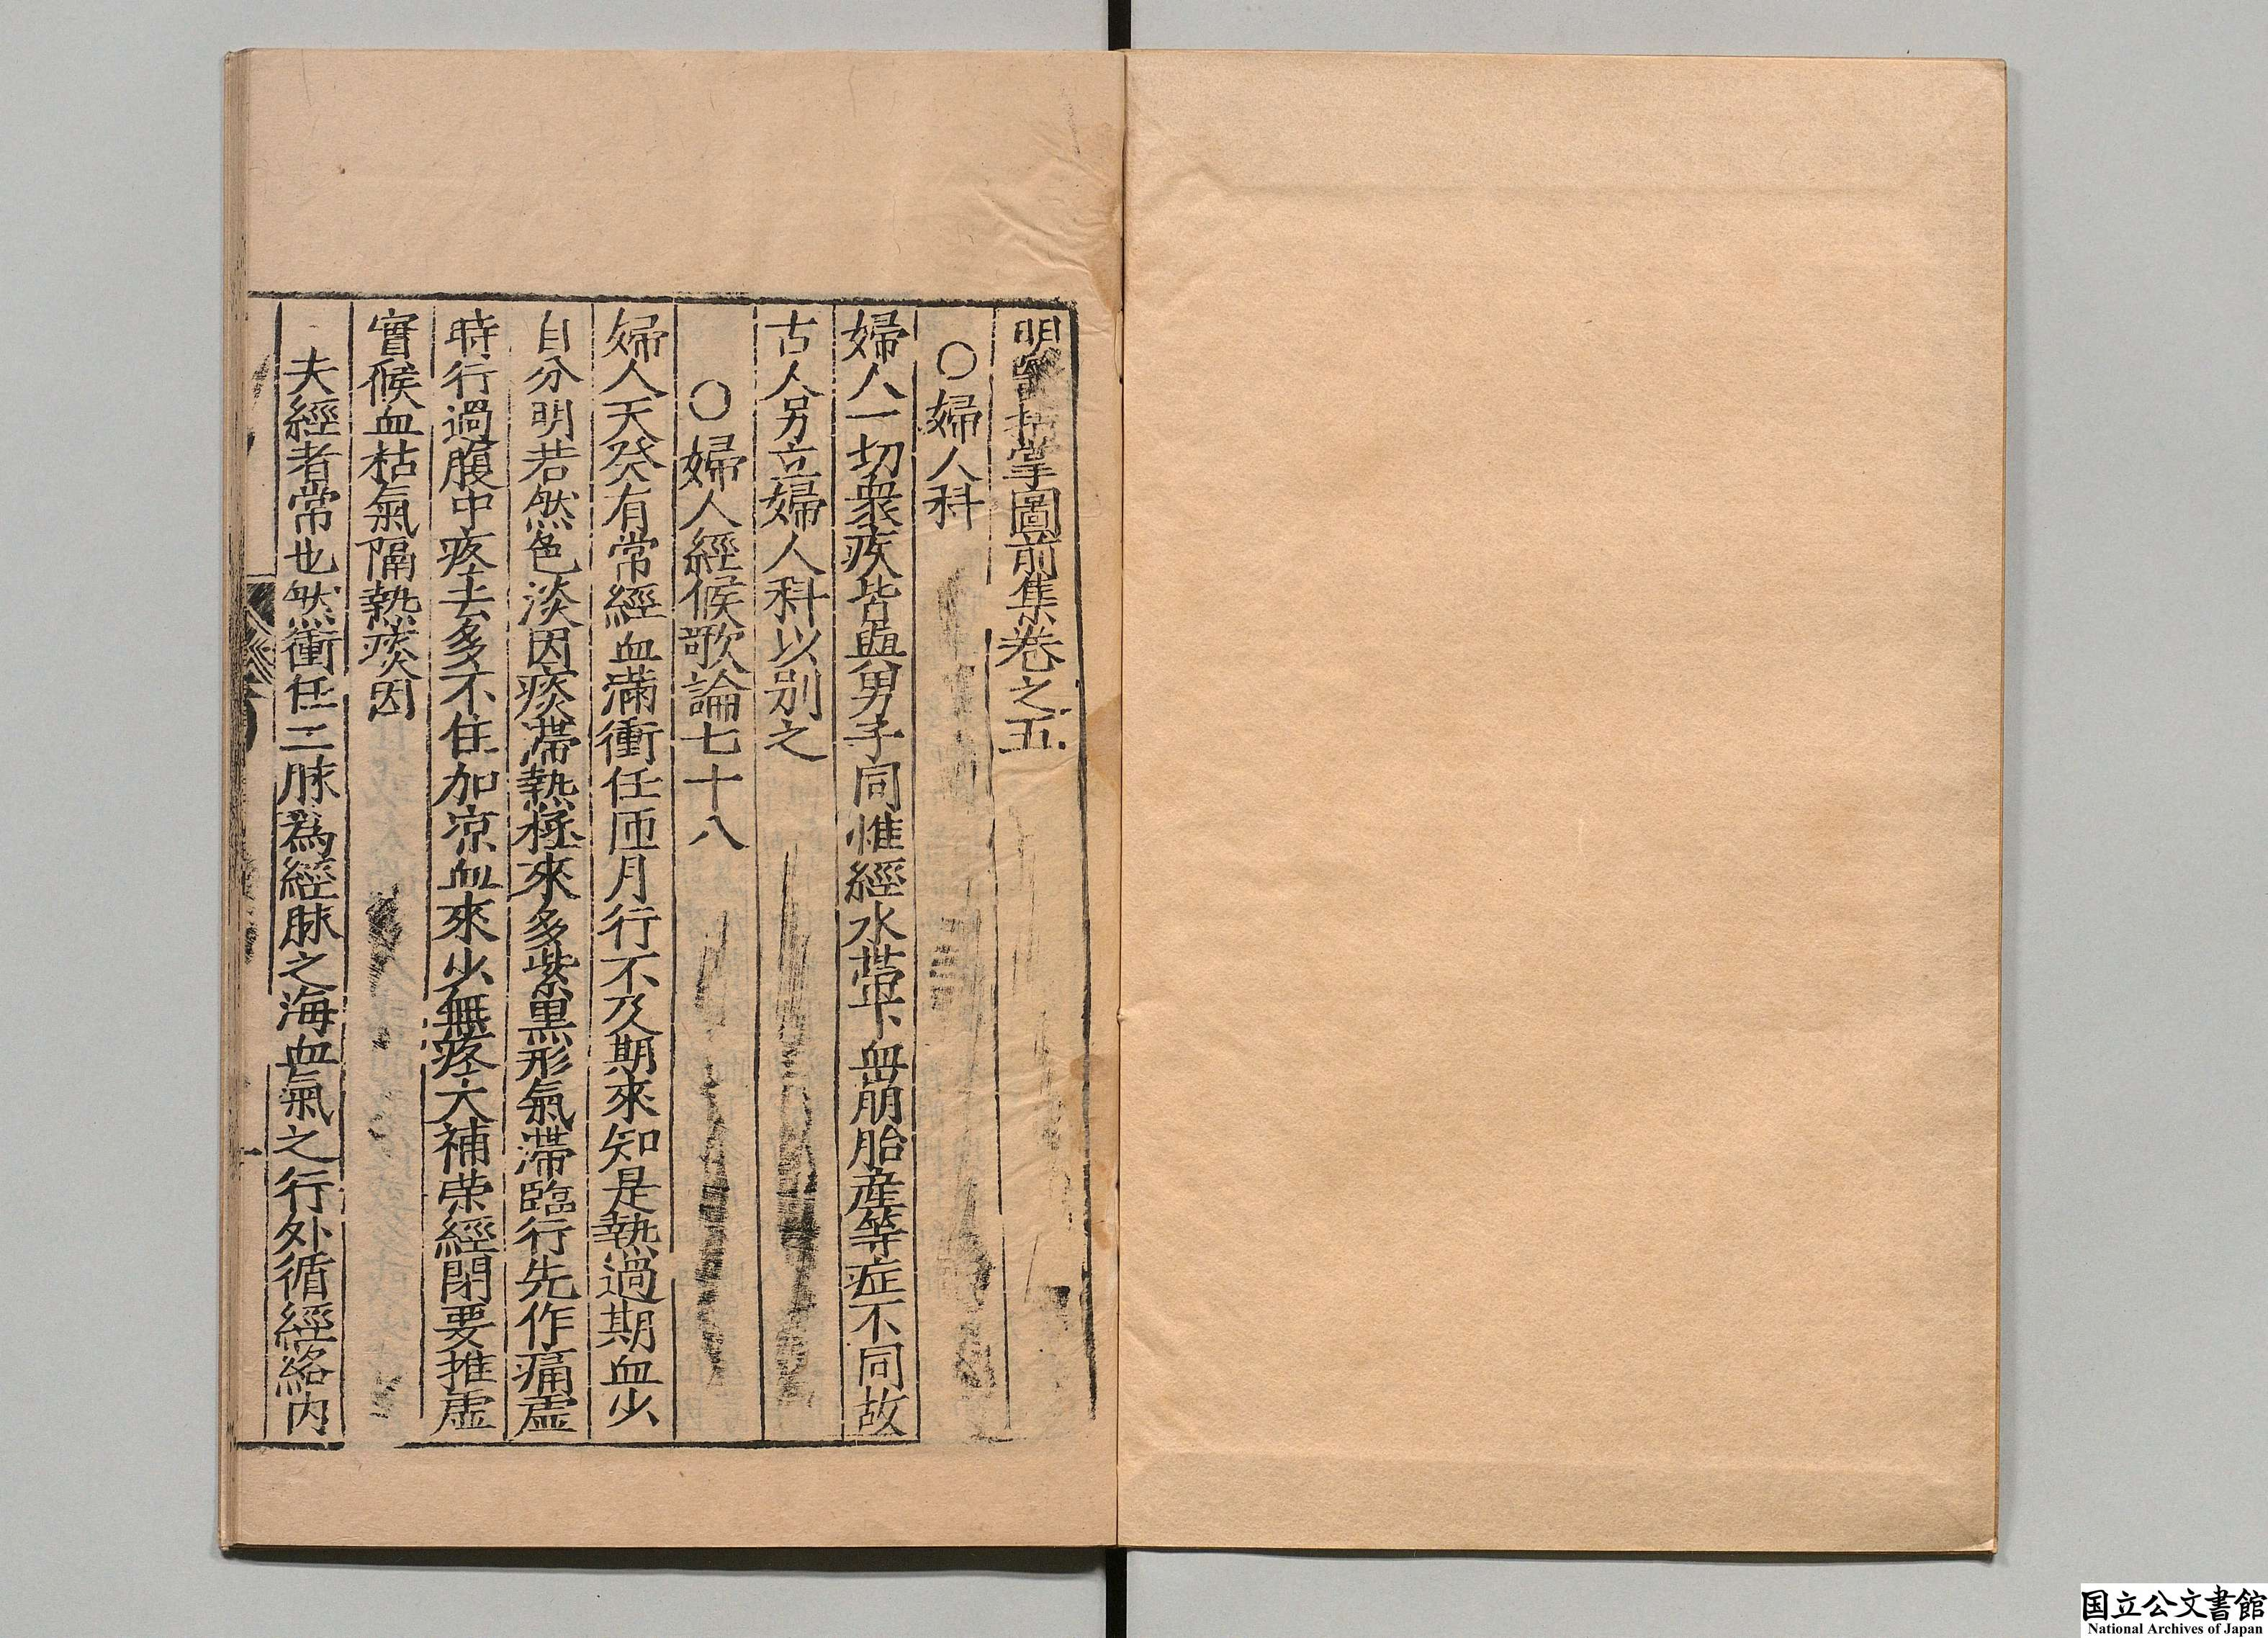 明醫指掌圖前集卷之五
○婦人科
婦人一切衆疾皆與男子同惟經水帶下血崩胎產等症不同故
古人另立婦人科以別之
○婦人經候歌論七十八
婦人天癸有常經血滿衝任匝月行不及期來知是熱過期血少
自分明若然色淡因痰滯熱極來多紫黒形氣滯臨行先作痛虛
時行過腹中疼去多不住加凉血來少無疼大補荣經閉要推虛
實候血枯氣隔熱痰因
夫經者常也然衝任二脉爲經脉之海血氣之行外循經絡内
国立公文書館
National Archives of Japan